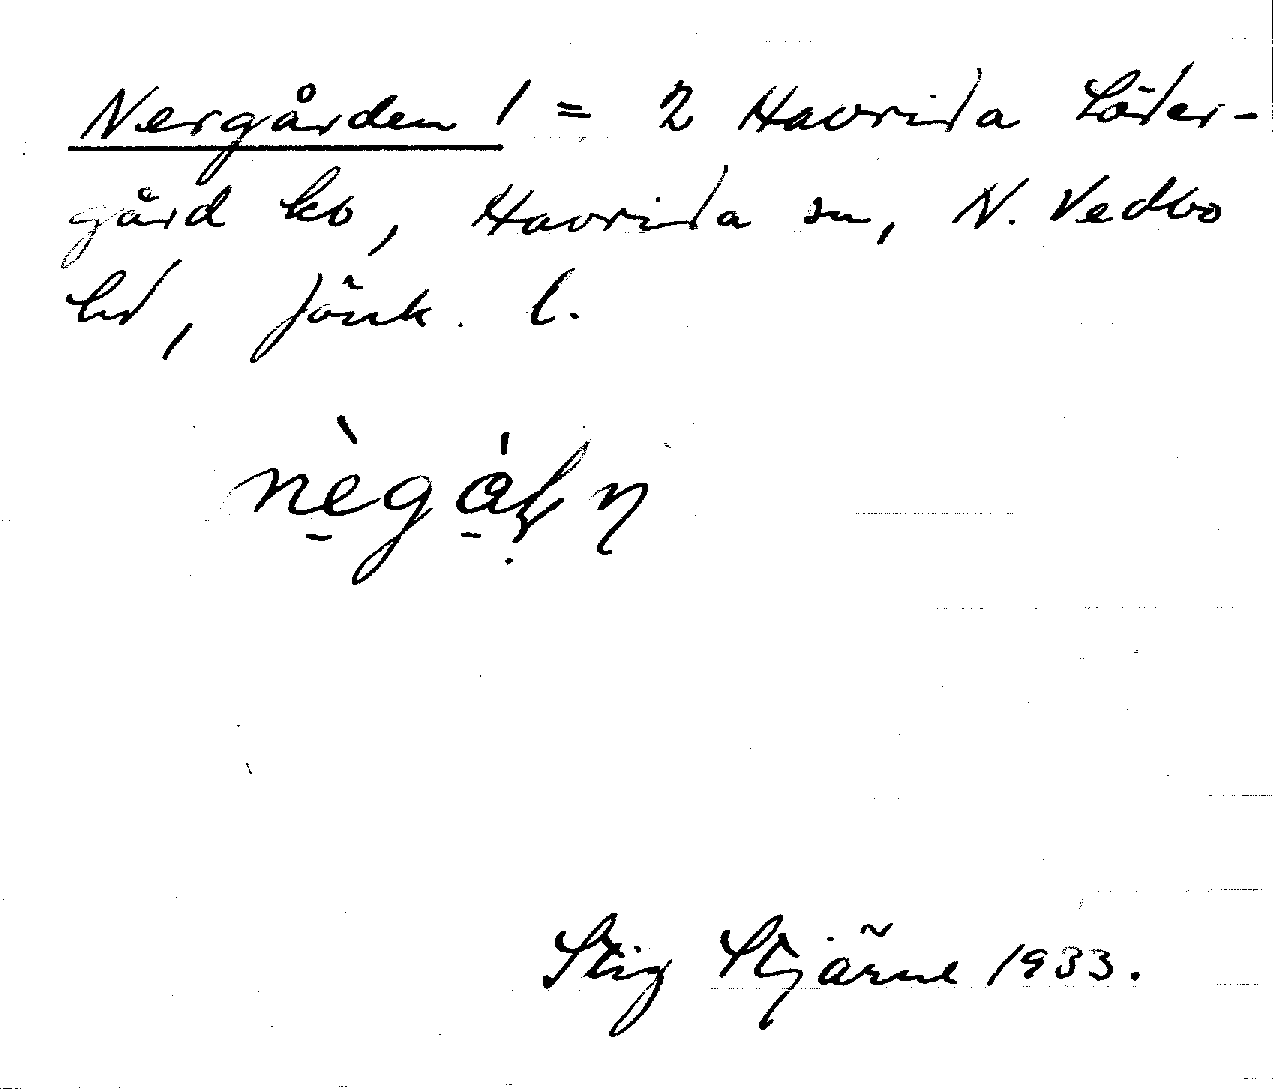 Nergården 1 = 2 Havrida Söder-
gård kb, Havrida sn, N. Vedbo
hd, Jönk. l.
Stig Stjärne 1933.